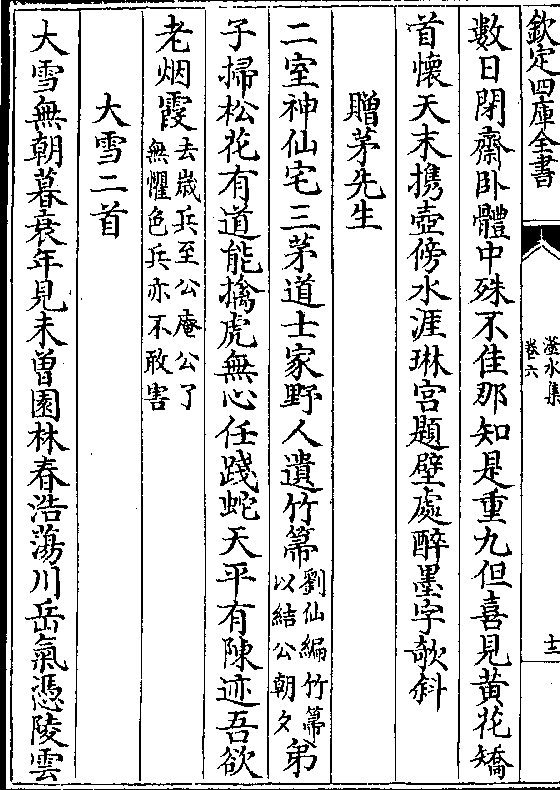 欽定四庫全書
滏水集
卷六
十三
數日閉齋卧體中殊不佳那知是重九但喜見黄花矯
首懐天末擕壺傍水涯琳宫題壁處醉墨字欹斜
贈茅先生
二室神仙宅三茅道士家野人遺竹篰劉仙編竹篰以結公朝夕弟
子掃松花有道能擒虎無心任踐蛇天平有陳迹吾欲
老烟霞去嵗兵至公庵公了無懼色兵亦不敢害
大雪二首
大雪無朝暮衰年見未曽園林春浩蕩川岳氣憑陵雲